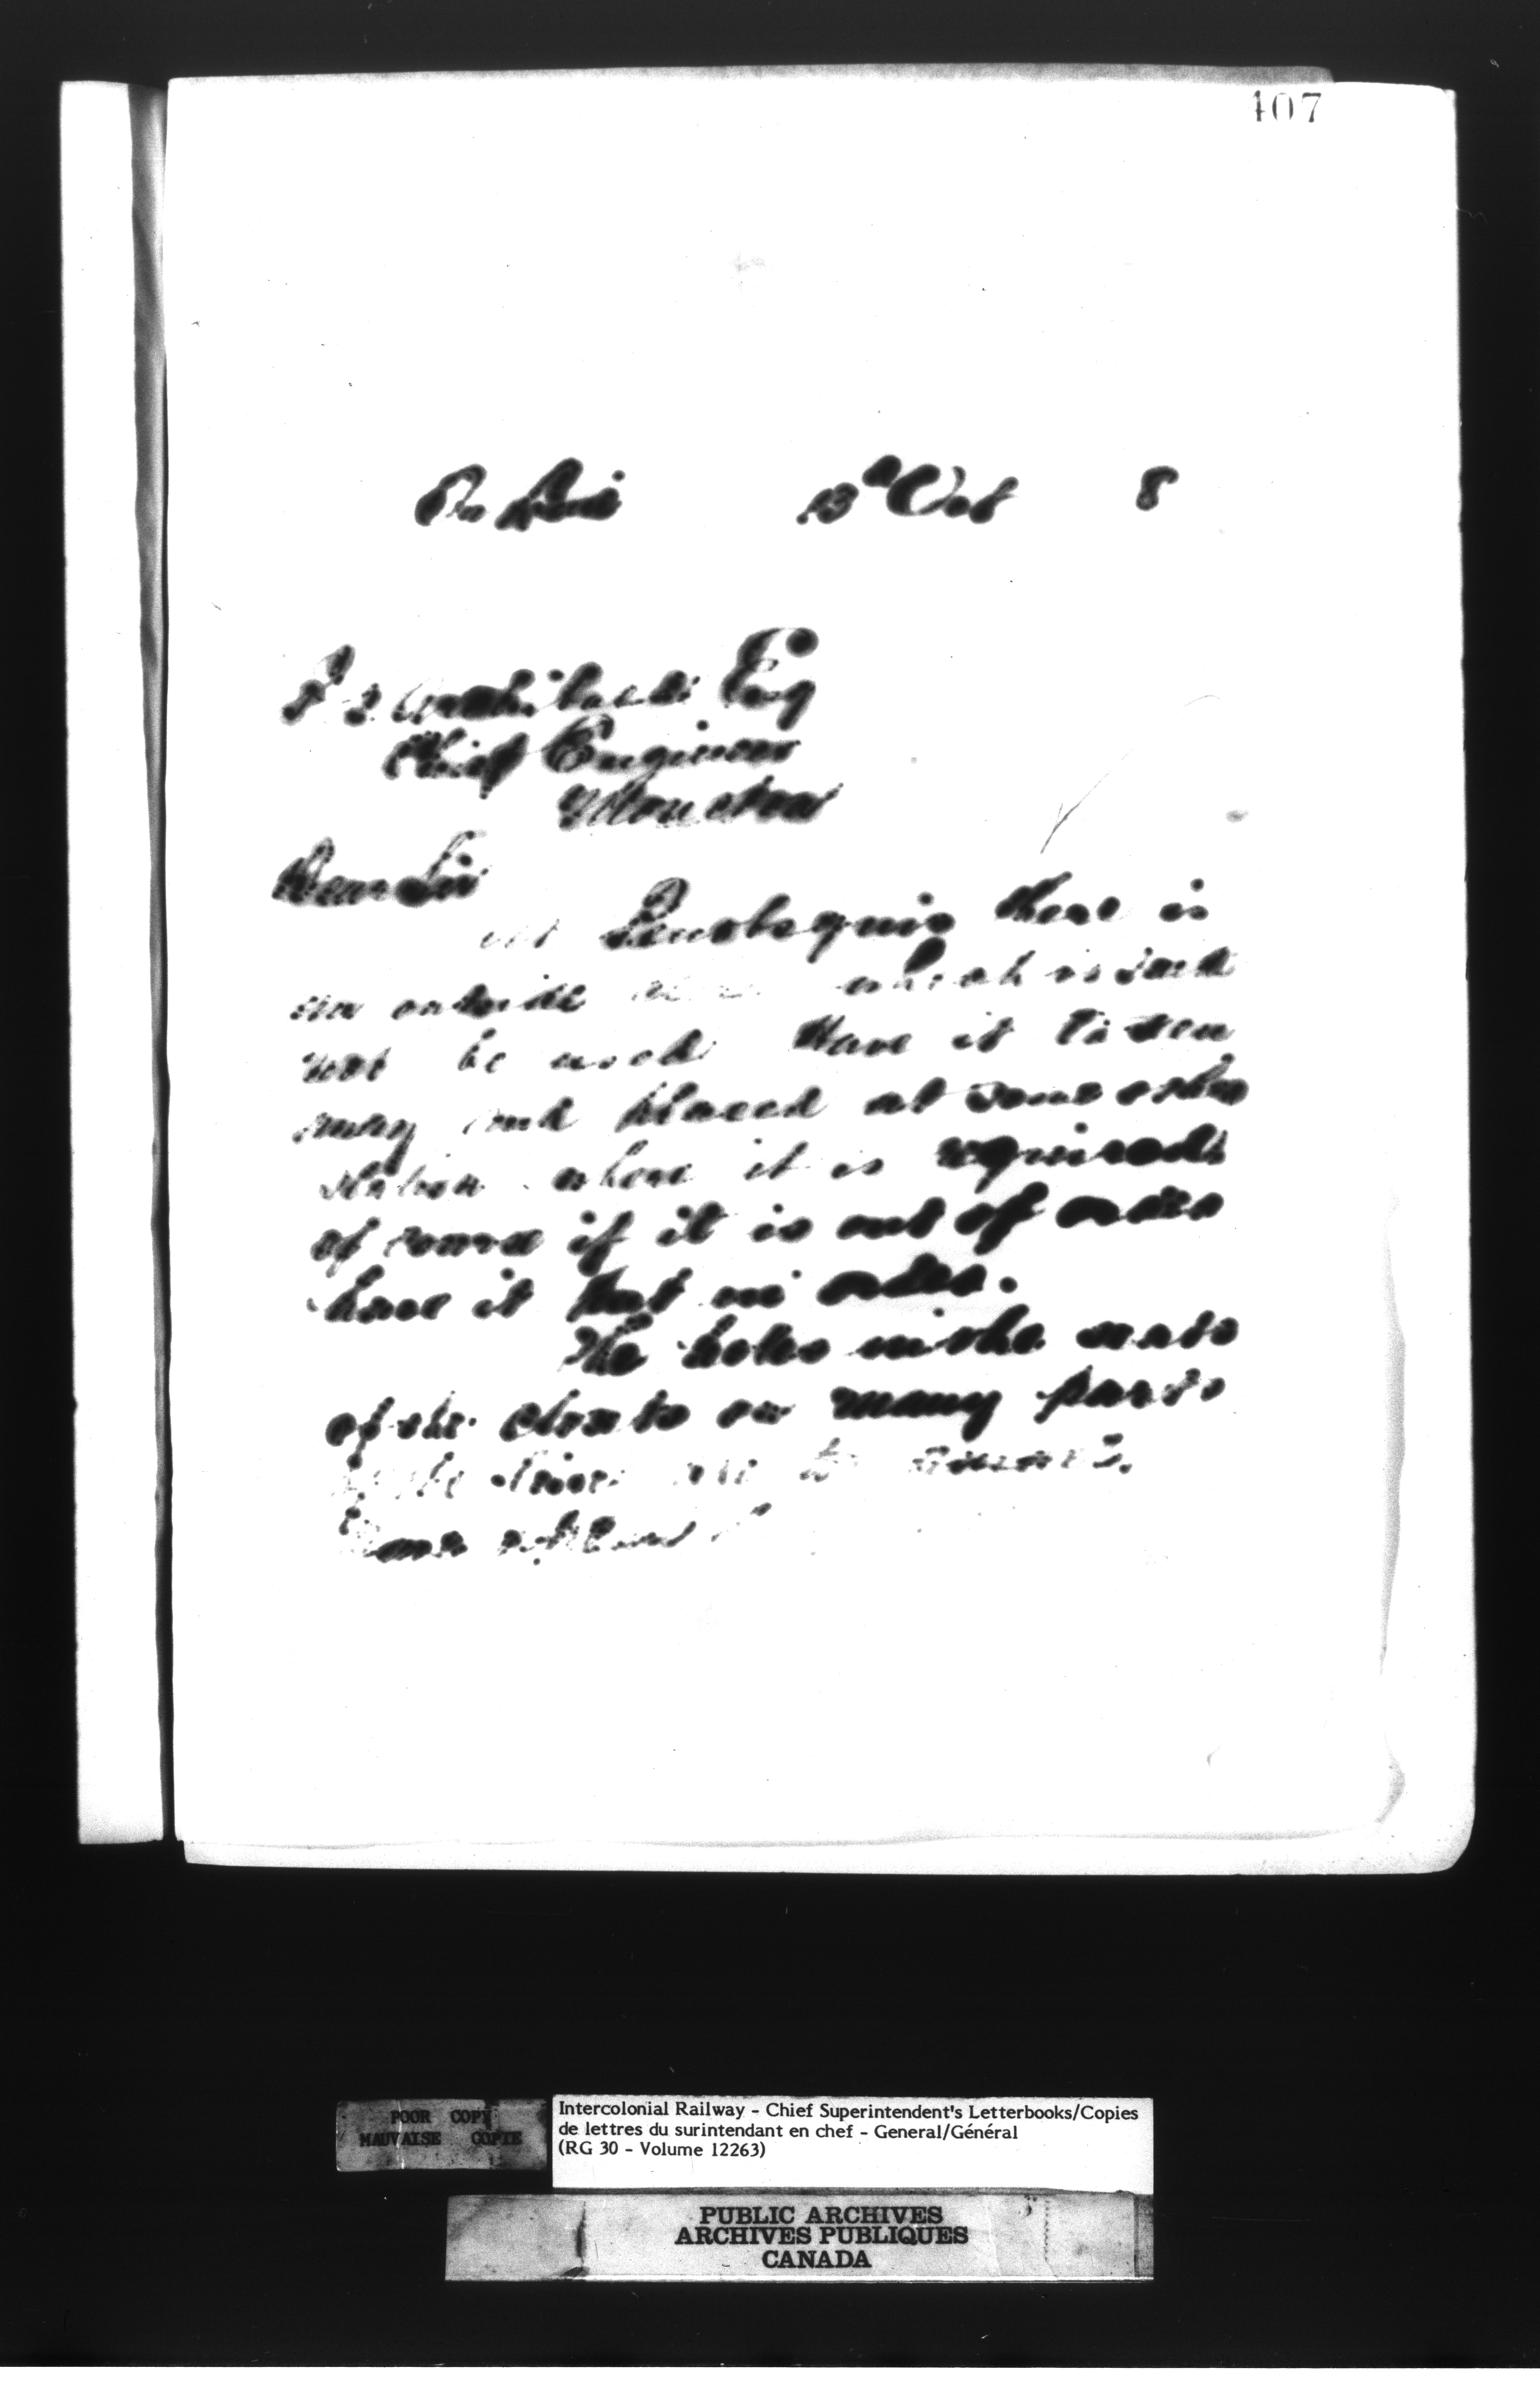 407
On Line 13th Oct 8
P S Archibald Esq
Chief Engineer
Moncton
Dear Sir
At Penobsquis there is
an outside which is said
not be used Have it taken
away and placed at some other
station where it is required
of course if it is out of order
have it put in order.
The holes in the seats
of the closets on many parts
of the line are to
POOR COPY
MAUVAISE COPIE
Intercolonial Railway - Chief Superintendent's Letterbooks/Copies
de lettres du surintendant en chef - General/Général
(RG 30 - Volume 12263)
PUBLIC ARCHIVES
ARCHIVES PUBLIQUES
CANADA